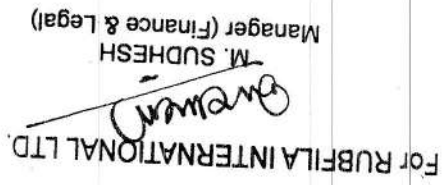 For RUBFILA INTERNATIONAL LTD.
M. SUDHESH
Manager (Finance & Legal)